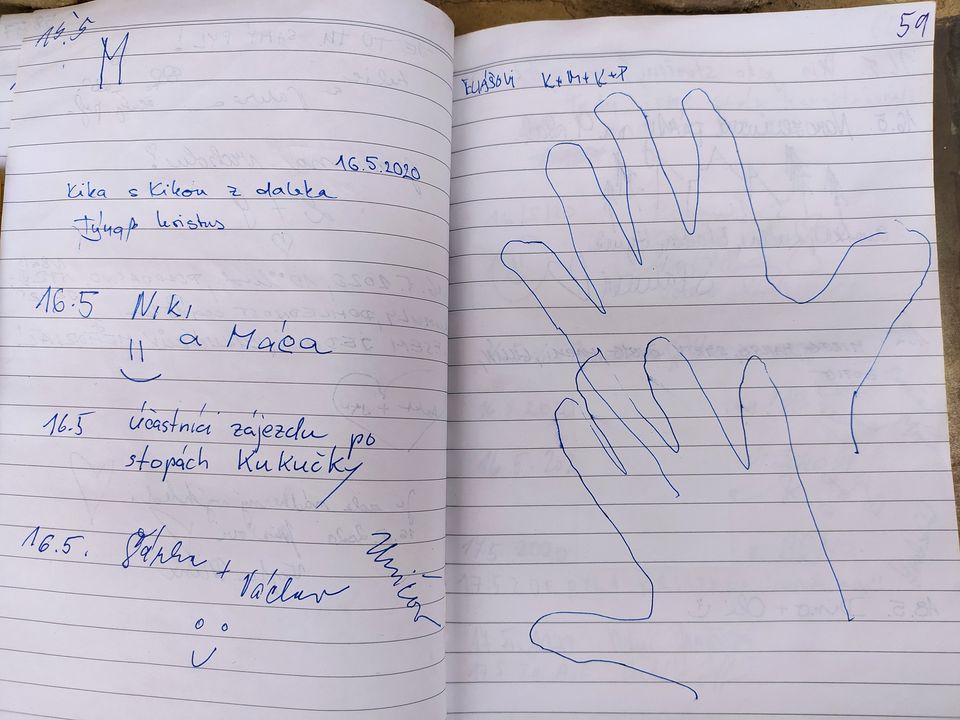 15.5
M
16.5.2020
Kika s Kikou z daleka
Týnap kristus
16.5 Niki
a Máca
16.5 účastníci zájezdu po
stopách Kukučky
16.5. Šárka +
Václav
Uničov
59
ELIÁŠOVI K+M+K+P